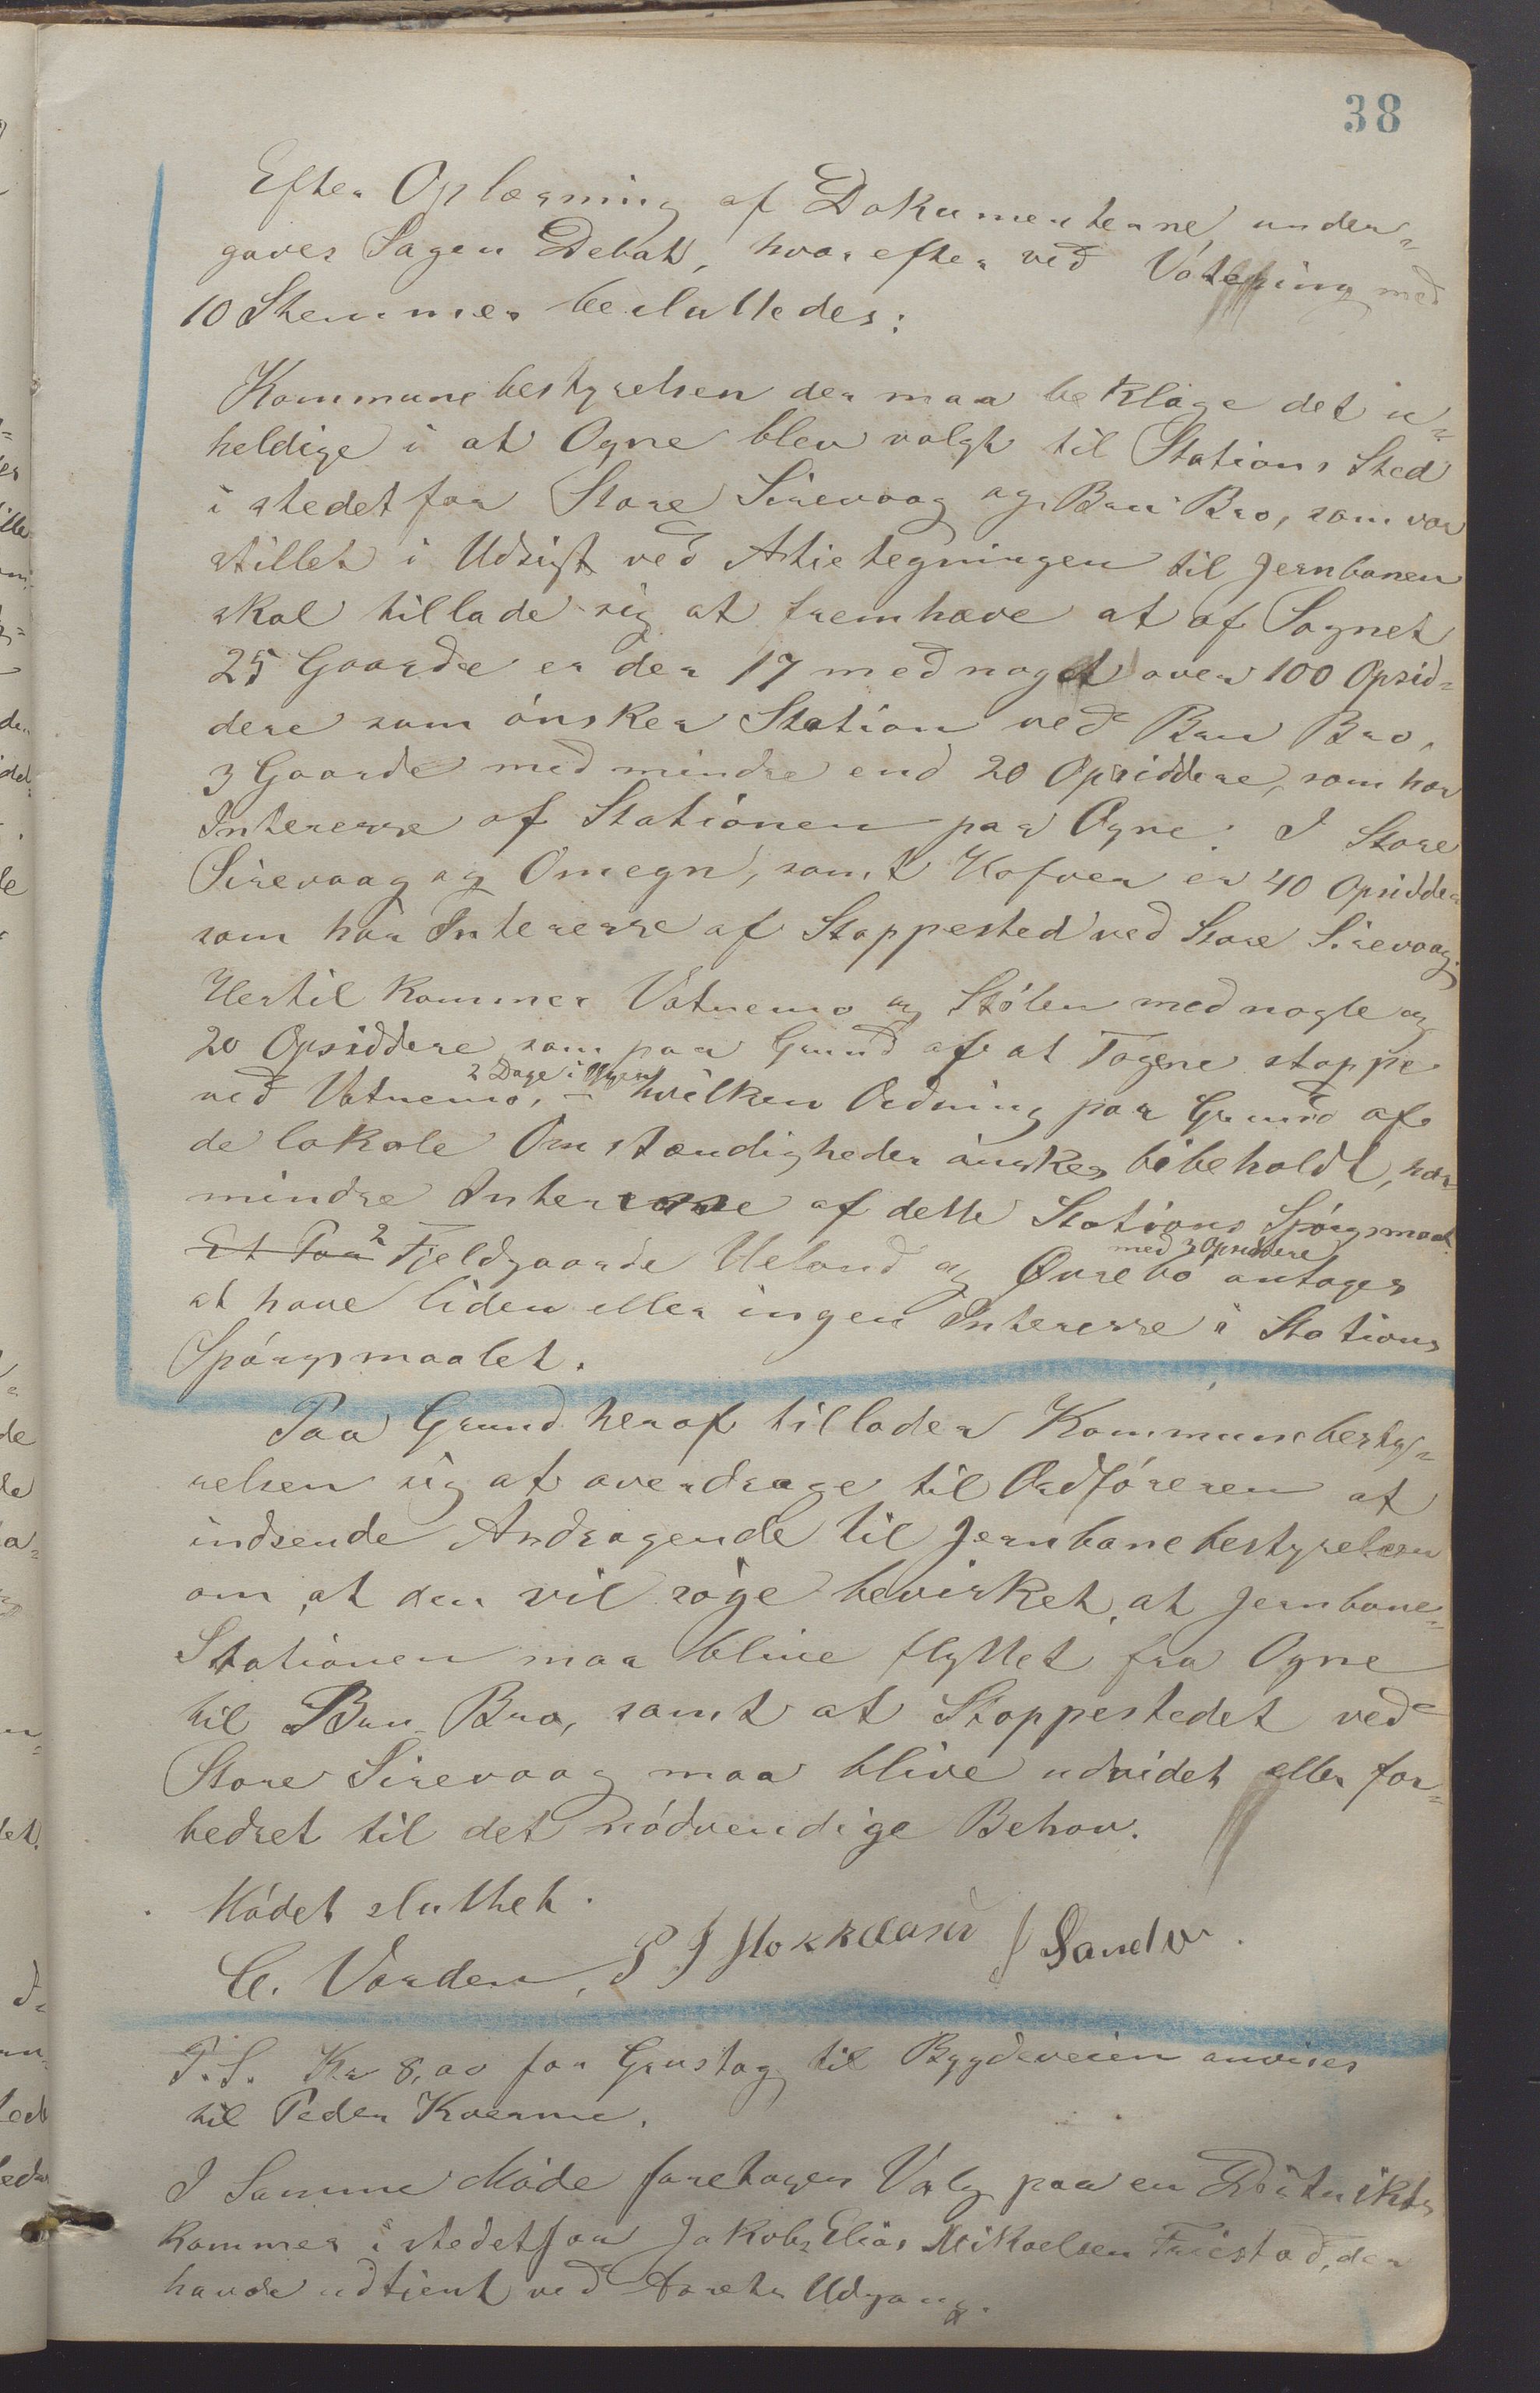 38
Efter Oplæsning af Dokumenterne, under-
gaves Sagen Debat, hvorefter ved Votering med
10 Stemmer besluttedes:
Kommunebestyrelsen der maa beklage det u-
heldige i at Ogne blev valgt til Stations Sted
i stedet for Store Sirevaag og Bru Bro, som var
stillet i Udsigt ved Aktietegningen til Jernbanen
skal tillade sig at fremhæve at af Sognets
25 Gaarde er der 17 med noget over 100 Opsid-
dere som ønsker Station ved Bru Bro,
3 Gaarde med mindre end 20 Opsiddere, som har
Interesse af Stationen paa Ogne. I Store
Sirevaag og Omegn, samt Hofven er 40 Opsiddere
som har Interesse af Stoppested ved Store Sirevaag.
Hertil kommer Vatnemo og Stølen med nogle og
20 Opsiddere som paa Grund af at Togene stoppe
ved Vatnemo, 2 Dage i Ugen – hvilken Ordning paa Grund af
de lokale Omstændigheder ønskes bibeholdt, har
mindre Interesse af dette Stations Spørgsmaal.
Et Par 2 Fjeldgaarde Ueland og Øvrebø med 3 Opsiddere antages
at have liden eller ingen Interesse i Stations
Spørgsmaalet.
Paa Grund heraf tillader Kommunebesty-
relsen sig at overdrage til Ordføreren at
indsende Andragende til Jernbanebestyrelsen
om at den vil søge bevirket, at Jernbane-
Stationen maa blive flyttet fra Ogne
til Bru Bro, samt at Stoppestedet ved
Store Sirevaag maa blive udvidet eller for-
bedret til det nødvendige Behov.
Mødet sluttet.
C. Varden, P J Mokkelasen J Sandv.
P.S. Kr 8,00 for Grustag til Bygdeveien anvises
til Peder Kverme.
I Samme Møde foretoges Valg paa en
kommes i stedet for Jakob Elias Mikaelsen Friestad, der
havde udtjent ved Aarets Udgang.